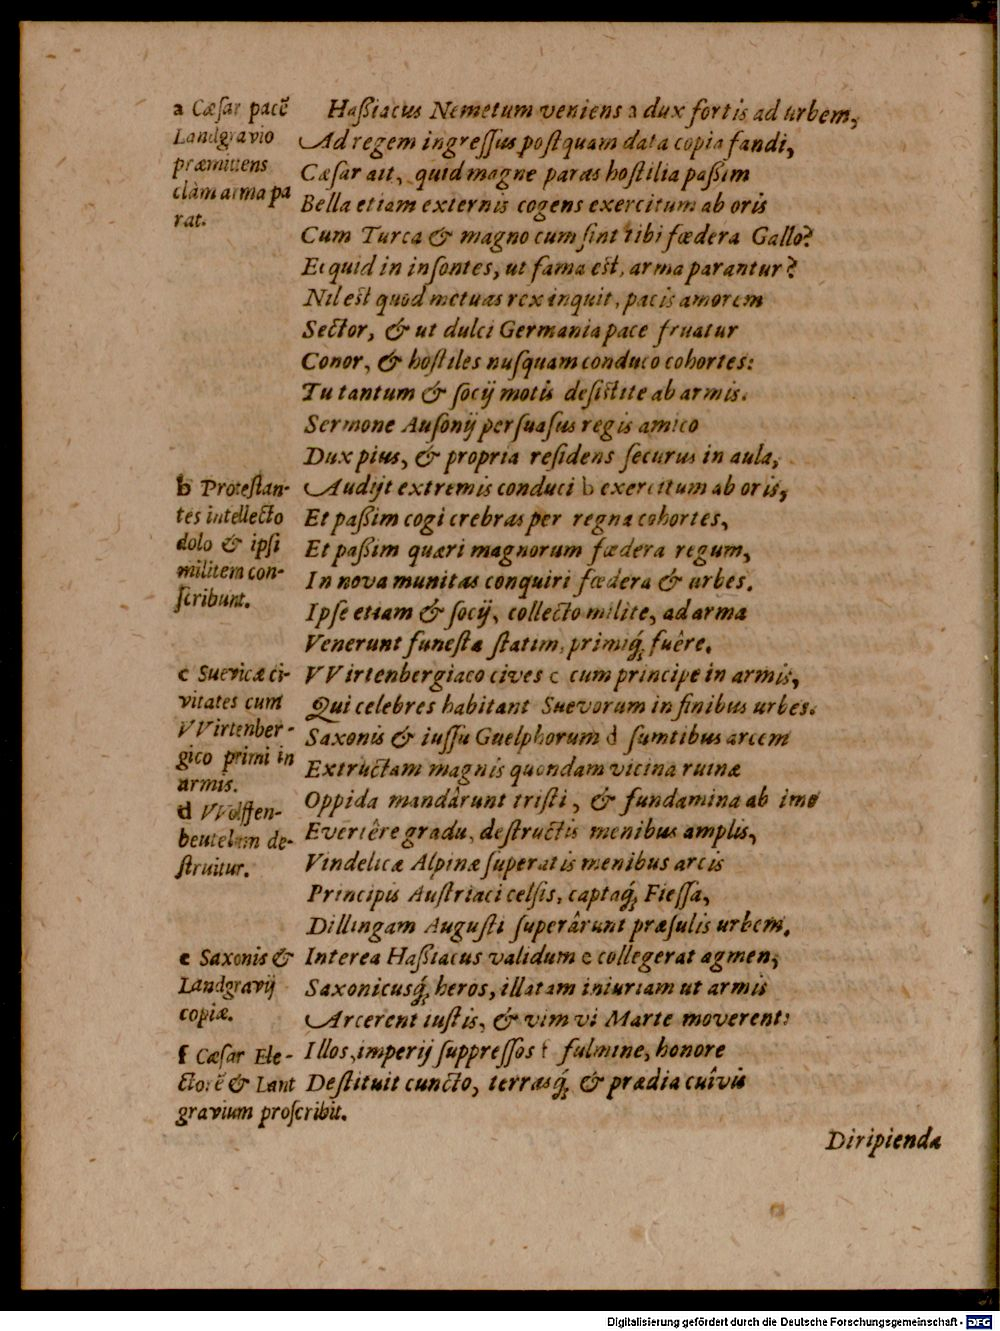 a Cæſar pacē
Landgravio
præmittens
clàm arma pa
rat.
Haßiacus Nemetum veniens a dux fortis ad urbem,
Ad regem ingreſſus poſtquam data copia fandi,
Cæſar ait, quid magne paras hoſtilia paßim
Bella etiam externis cogens exercitum ab oris
Cum Turca & magno cum ſint tibi fœdera Gallo?
Ecquid in inſontes, ut fama est, arma parantur?
Nil est quod metuas rex inquit, pacis amorem
Sector, & ut dulci Germania pace fruatur
Conor, & hoſtiles nuſquam conduco cohortes:
Tu tantum & ſocij motis deſistite ab armis.
Sermone Auſonij perſuaſus regis amico
Dux pius, & propria reſidens ſecurus in aula,
b Proteſtan-
tes intellecto
dolo & ipſi
militem con-
ſcribunt.
Audijt extremis conduci b exercitum ab oris,
Et paßim cogi crebras per regna cohortes,
Et paßim quæri magnorum fœdera regum,
In nova munitas conquiri fœdera & urbes.
Ipſe etiam & ſocij, collecto milite, ad arma
Venerunt funeſta ſtatim, primiq́; fuêre.
c Suevicæ ci-
vitates cum
VVirtenber-
gico primi in
armis.
VVirtenbergiaco cives c cum principe in armis,
Qui celebres habitant Suevorum in finibus urbes.
d VVolffen-
beutelum de-
ſtruitur.
Saxonis & iuſſu Guelphorum d ſumtibus arcem
Extructam magnis quondam vicina ruinæ
Oppida mandârunt triſti, & fundamina ab imo
Evertêre gradu, deſtructis menibus amplis,
Vindelicæ Alpinæ ſuperatis menibus arcis
Principis Auſtriaci celſis, captaq́; Fieſſa,
Dillingam Auguſti ſuperârunt præſulis urbem.
e Saxonis &
Landgravij
copiæ.
Interea Haßiacus validum e collegerat agmen,
Saxonicusq́; heros, illatam iniuriam ut armis
Arcerent iuſtis, & vim vi Marte moverent:
f Cæſar Ele-
ctorē & Lant
gravium proſcribit.
Illos, imperij ſuppreſſos f fulmine, honore
Deſtituit cuncto, terrasq́; & prædia cuîvis
Diripienda
Digitalisierung gefördert durch die Deutsche Forschungsgemeinschaft - DFG